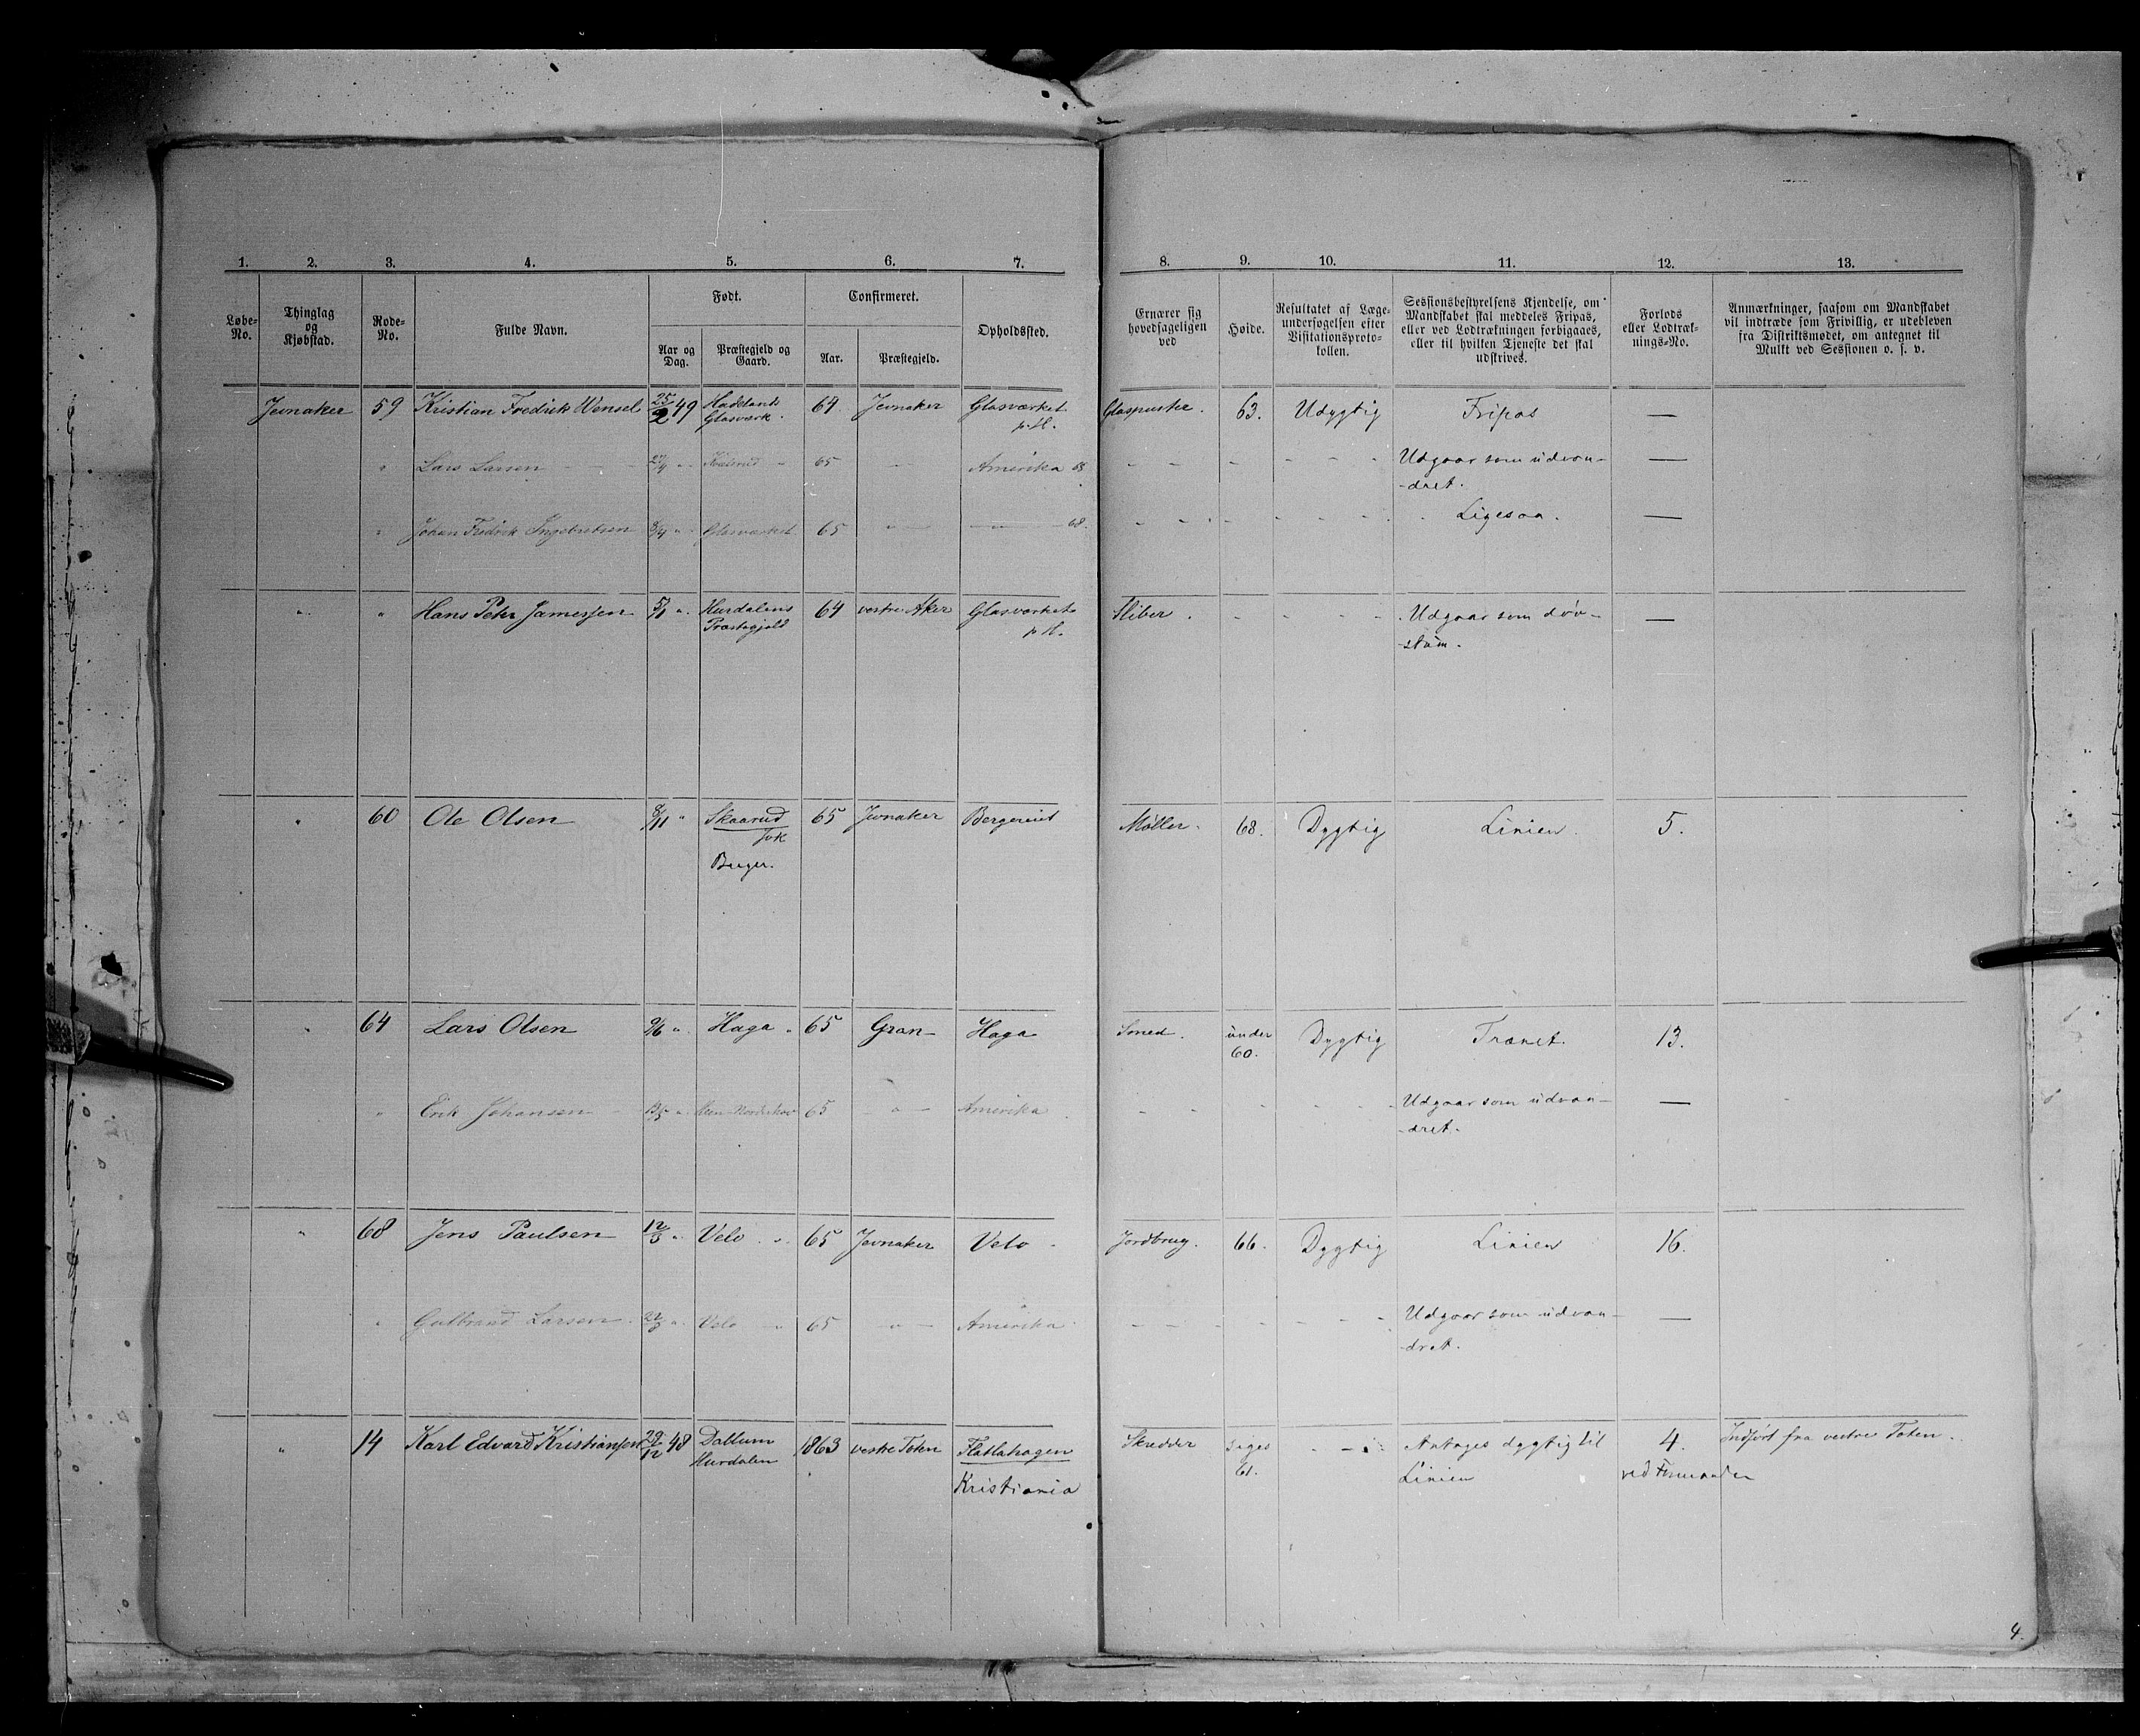 1. 2. 3. 4. 5. 6. 7. 8. 9. 10. 11. 12. 13.
Løbe-No.
Thinglag og Kjøbstad.
Rode-No.
Fulde Navn.
Født.
Aar og Dag.
Præstegjeld og Gaard.
Confirmeret.
Aar.
Præstegjeld.
Opholdssted.
Ernærer sig hovedsageligen ved
Høide.
Resultatet af Læge-undersøgelsen efter Visitationsproto-kollen.
Sessionsbestyrelsens Kjendelse, om Mandskabet skal meddeles Fripas, eller ved Lodtrækningen forbigaaes, eller til hvilken Tjeneste det skal udskrives.
Forlods eller Lodtræk-nings-No.
Anmærkninger, saasom om Mandskabet vil indtræde som Frivillig, er udebleven fra Distriktsmødet, om antegnet til Mulkt ved Sessionen o. s. v.
Jevnaker 59 Kristian Fredrik Wensel 25/2 49 Hadelands 64 Jevnaker Glasværket Glaspuster. 63. Udygtig Fripas —
Glasværk. p. H.
" Lars Larsen 27/4 " 65 — Amerika 68 - - - - - - Udgaar som udvan- —
-dret.
" Johan Fredrik Ingebretsen 8/4 " Glasværket 65 " — — " — 68. - - - - - - Ligesaa. —
" " Hans Peter Jamessen 5/1 " Hurdalens 64 vestre Aker Glasværket Sliber. - - - - Udgaar som døv- —
Præstegjeld p. H. -stum.
" 60 Ole Olsen 8/11 " Skaarud 65 Jevnaker Bergereiet Møller. 68. Dygtig Linien. 5.
Burger.
" 64 Lars Olsen 9/6 " Haga " 65 Gran Haga Smed. under Dygtig Trænet. 13.
60.
" Erik Johansen " 65 — " — Amerika - - - - - - Udgaar som udvan- —
-dret.
" 68 Jens Paulsen 12/3 " Velo " 65 Jevnaker Velo Jordbrug. 66. Dygtig Linien 16.
" Gulbrand Larsen 22/3 " Velo " 65 " — Amerika - - - - - - Udgaar som udvan- —
-dret.
" 14 Karl Edvard Kristiansen 29/12 48 Dallum 1863 vestre Toten Flatlahagen Skredder siges - - - Antages dygtig til 4. Indført fra vestre Toten.
Hurdalen Kristiania 61. Linien ved
4.